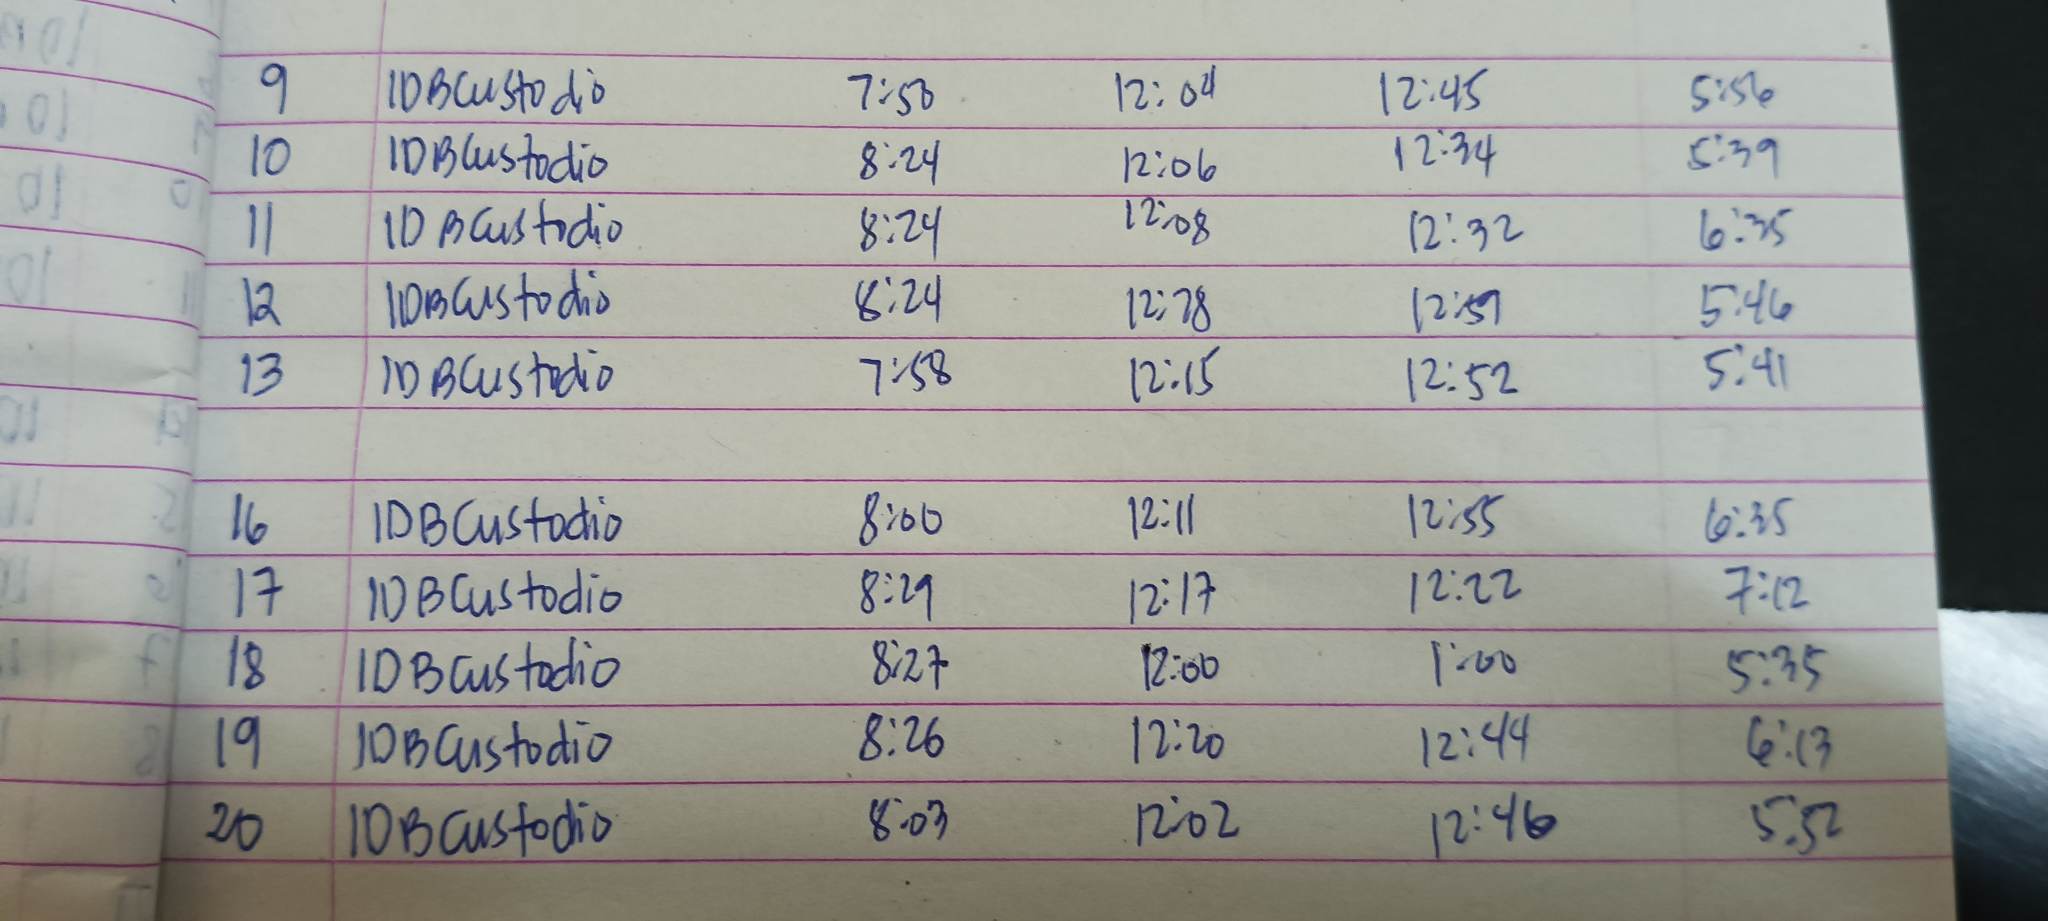 9 IDBCustodio 7:50 12:04 12:45 5:56
10 IDBCustodio 8:24 12:06 12:34 5:39
11 IDBCustodio 8:24 12:08 12:32 6:35
12 IDBCustodio 8:24 12:28 12:59 5:46
13 IDBCustodio 7:58 12:15 12:52 5:41
16 IDBCustodio 8:00 12:11 12:55 6:35
17 IDBCustodio 8:29 12:17 12:22 7:12
18 IDBCustodio 8:27 12:00 1:00 5:35
19 IDBCustodio 8:26 12:20 12:44 6:13
20 IDBCustodio 8:03 12:02 12:46 5:52